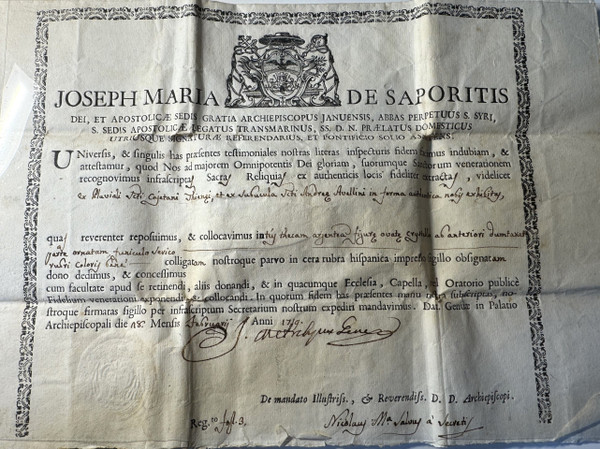 JOSEPH MARIA DE SAPORITIS
DEI, ET APOSTOLICÆ SEDIS GRATIA ARCHIEPISCOPUS JANUENSIS, ABBAS PERPETUUS S. SYRI,
S. SEDIS APOSTOLICÆ LEGATUS TRANSMARINUS, SS. D. N. PRÆLATUS DOMESTICUS
UTRIUSQUE SIGNATURÆ REFERENDARIUS, ET PONTIFICIO SOLIO ASSISTENS.
Universis, & singulis has præsentes testimoniales nostras literas inspecturis fidem facimus indubiam, &
attestamur, quod Nos ad majorem Omnipotentis Dei gloriam, suorumque Sanctorum venerationem
recognovimus infrascriptas Sacras Reliquias ex authenticis locis fideliter extractas, videlicet
ex Pluviali Scti Cajetani Thienei, et ex Subucula Scti Andreæ Avellini in forma authentica nobis exhibitas,
quas reverenter reposuimus, & collocavimus intus thecam argenteam figuræ ovatæ crystallo ab anteriori dumtaxat
parte ornatam funiculo serico
rubri coloris bene colligatam nostroque parvo in cera rubra hispanica impresso sigillo obsignatam
dono dedimus, & concessimus
cum facultate apud se retinendi, aliis donandi, & in quacumque Ecclesia, Capella, ad Oratorio publicè
Fidelium venerationi exponendi & collocandi. In quorum fidem has præsentes manu nostra subscriptas, no-
stroque firmatas sigillo per infrascriptum Secretarium nostrum expediri mandavimus. Dat. Genuæ in Palatio
Archiepiscopali die 18. Mensis Februarij Anni
J. M. Archiepus Genuæ
De mandato Illustriss., & Reverendiss. D. D. Archiepiscopi.
Reg.to fol. 3. Nicolaus Ma. à Secretis